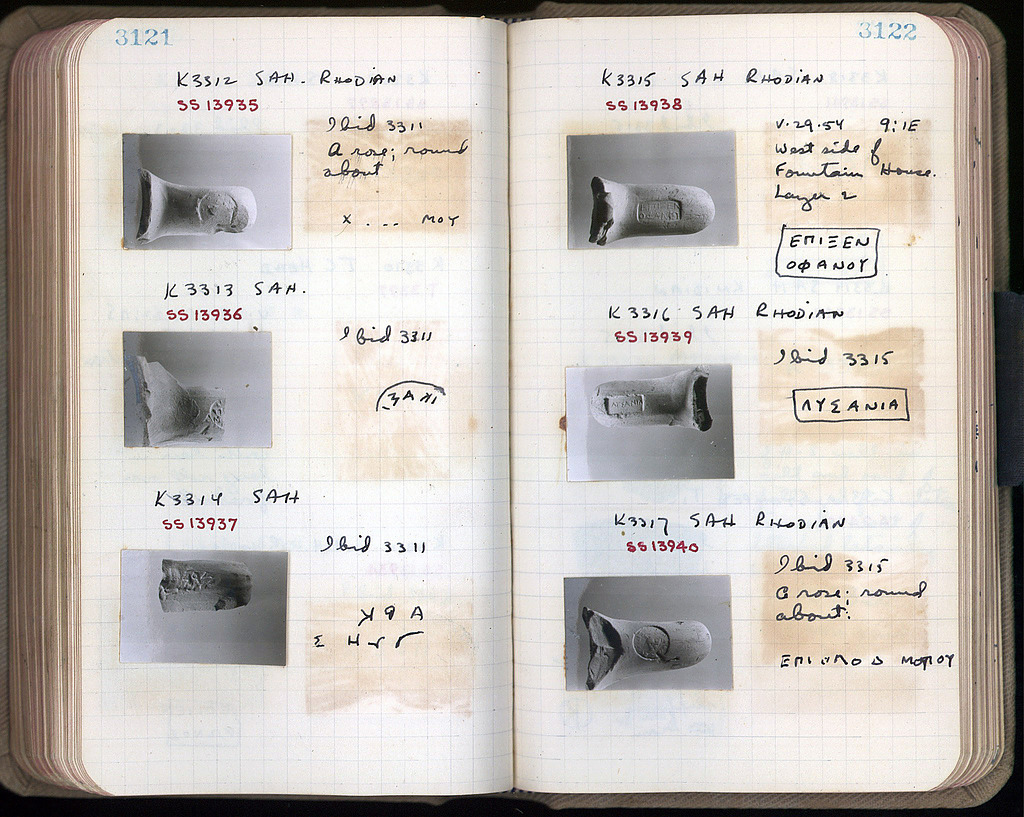 3121
K3312 SAH. RHODIAN
SS 13935
Ibid 3311
A rose; round
about
x . . . . ΜΟΥ
K3313 SAH.
SS 13936
Ibid 3311
K3314 SAH
SS 13937
Ibid 3311
3122
K3315 SAH RHODIAN
SS 13938
V·29·54 9:IE
West side of
Fountain House.
Layer 2
ΕΠΙΞΕΝ
ΟΦΑΝΟΥ
K3316 SAH RHODIAN
SS 13939
Ibid 3315
ΛΥΣΑΝΙΑ
K3317 SAH RHODIAN
SS 13940
Ibid 3315
A rose; round
about.